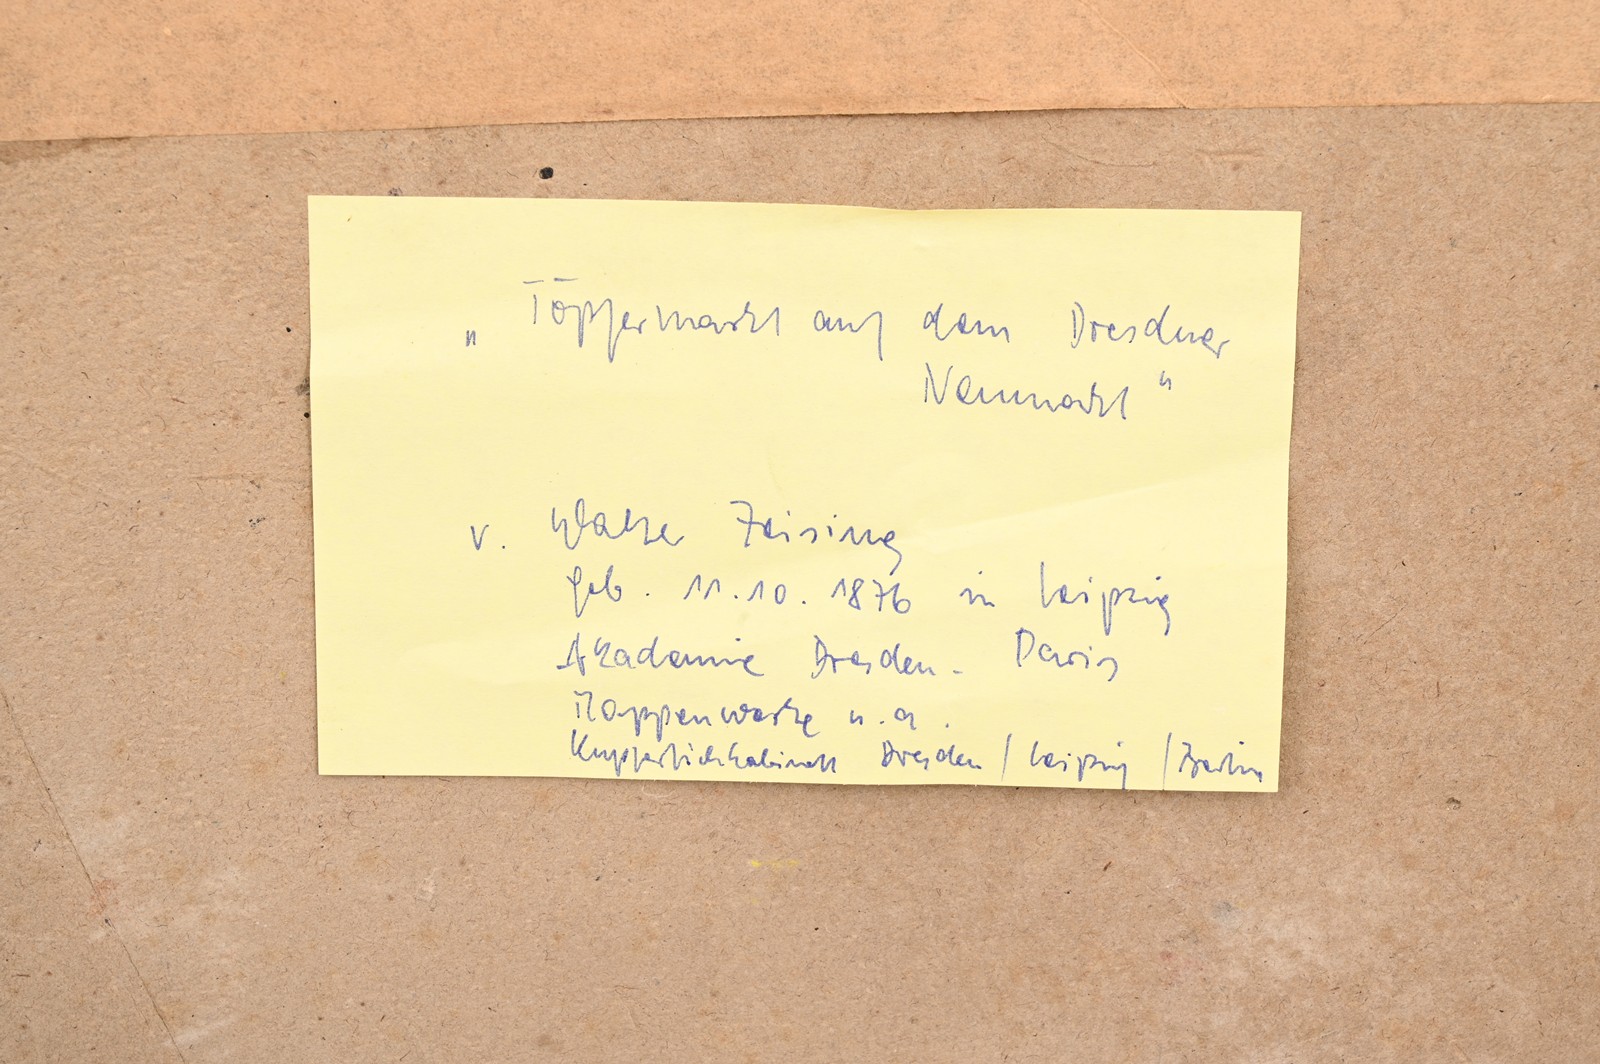 „ Töpfermarkt auf dem Dresdner
Neumarkt "
v. Walter Zeising
geb. 11.10.1876 in Leipzig
Akademie Dresden - Paris
Mappenwerke u.a.
Kupferstichkabinett Dresden / Leipzig / Berlin